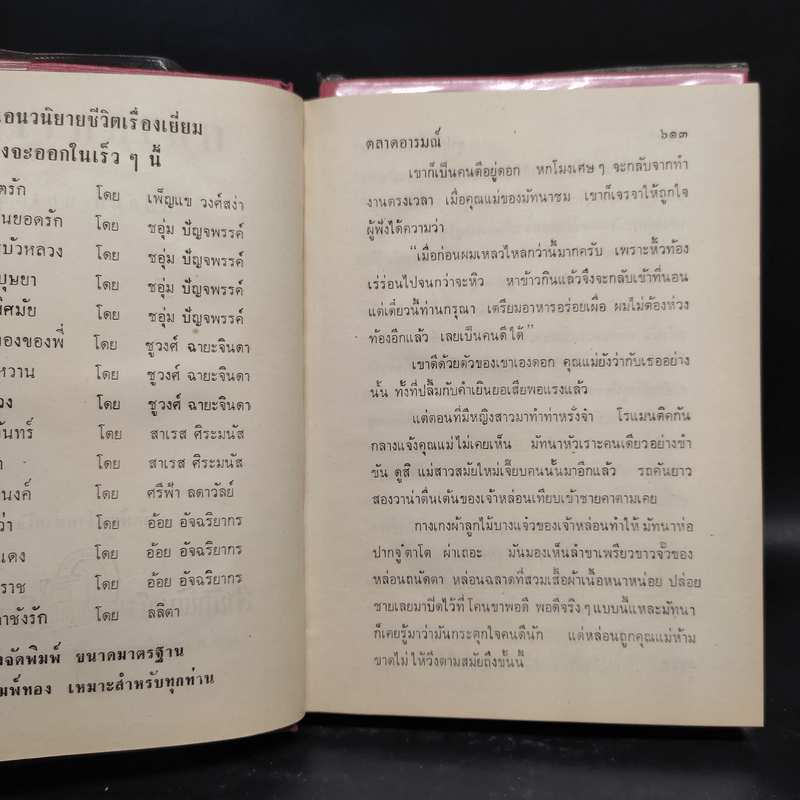 เอนวนิยายชีวิตเรื่องเยี่ยม
งจะออกในเร็ว ๆ นี้
ตรัก โดย เพ็ญแข วงศ์สง่า
นยอดรัก โดย ชอุ่ม ปัญจพรรค์
รบัวหลวง โดย ชอุ่ม ปัญจพรรค์
บุษยา โดย ชอุ่ม ปัญจพรรค์
พิศมัย โดย ชอุ่ม ปัญจพรรค์
ของของพี่ โดย ชูวงศ์ ฉายะจินดา
หวาน โดย ชูวงศ์ ฉายะจินดา
วง โดย ชูวงศ์ ฉายะจินดา
จันทร์ โดย สาเรส ศิระมนัส
า โดย สาเรส ศิระมนัส
นงค์ โดย ศรีฟ้า ลดาวัลย์
ว่า โดย อ้อย อัจฉริยากร
แดง โดย อ้อย อัจฉริยากร
ราช โดย อ้อย อัจฉริยากร
าชังรัก โดย ลลิตา
งจัดพิมพ์ ขนาดมาตรฐาน
มพ์ทอง เหมาะสำหรับทุกท่าน
ตลาดอารมณ์ ๖๑๓
เขาก็เป็นคนดีอยู่ดอก หกโมงเศษ ๆ จะกลับจากทำ
งานตรงเวลา เมื่อคุณแม่ของมัทนาชม เขาก็เจรจาให้ถูกใจ
ผู้ฟังได้ความว่า
“เมื่อก่อนผมเหลวไหลกว่านี้มากครับ เพราะหิ้วท้อง
เร่ร่อนไปจนกว่าจะหิว หาข้าวกินแล้วจึงจะกลับเข้าที่นอน
แต่เดี๋ยวนี้ท่านกรุณา เตรียมอาหารอร่อยเผื่อ ผมไม่ต้องห่วง
ท้องอีกแล้ว เลยเป็นคนดีได้”
เขาดีด้วยตัวของเขาเองดอก คุณแม่ยังว่ากับเธออย่าง
นั้น ทั้งที่ปลื้มกับคำเยินยอเสียพอแรงแล้ว
แต่ตอนที่มีหญิงสาวมาทำท่าหรั่งจ๋า โรแมนติคกัน
กลางแจ้งคุณแม่ไม่เคยเห็น มัทนาหัวเราะคนเดียวอย่างขำ
ขัน ดูสิ แม่สาวสมัยใหม่เจี๊ยบคนนั้นมาอีกแล้ว รถคันยาว
สองวาน่าตื่นเต้นของเจ้าหล่อนเทียบเข้าชายคาตามเคย
กางเกงผ้าลูกไม้บางแจ๋วของเจ้าหล่อนทำให้ มัทนาห่อ
ปากจู๋ตาโต ผ่าเถอะ มันมองเห็นลำขาเพรียวขาวจั๊วของ
หล่อนถนัดตา หล่อนฉลาดที่สวมเสื้อผ้าเนื้อหนาหน่อย ปล่อย
ชายเลยมาปิดไว้ที่โคนขาพอดี พอดีจริง ๆ แบบนี้แหละมัทนา
ก็เคยรู้มาว่ามันกระตุกใจคนดีนัก แต่หล่อนถูกคุณแม่ห้าม
ขาดไม่ให้วิ่งตามสมัยถึงขั้นนี้